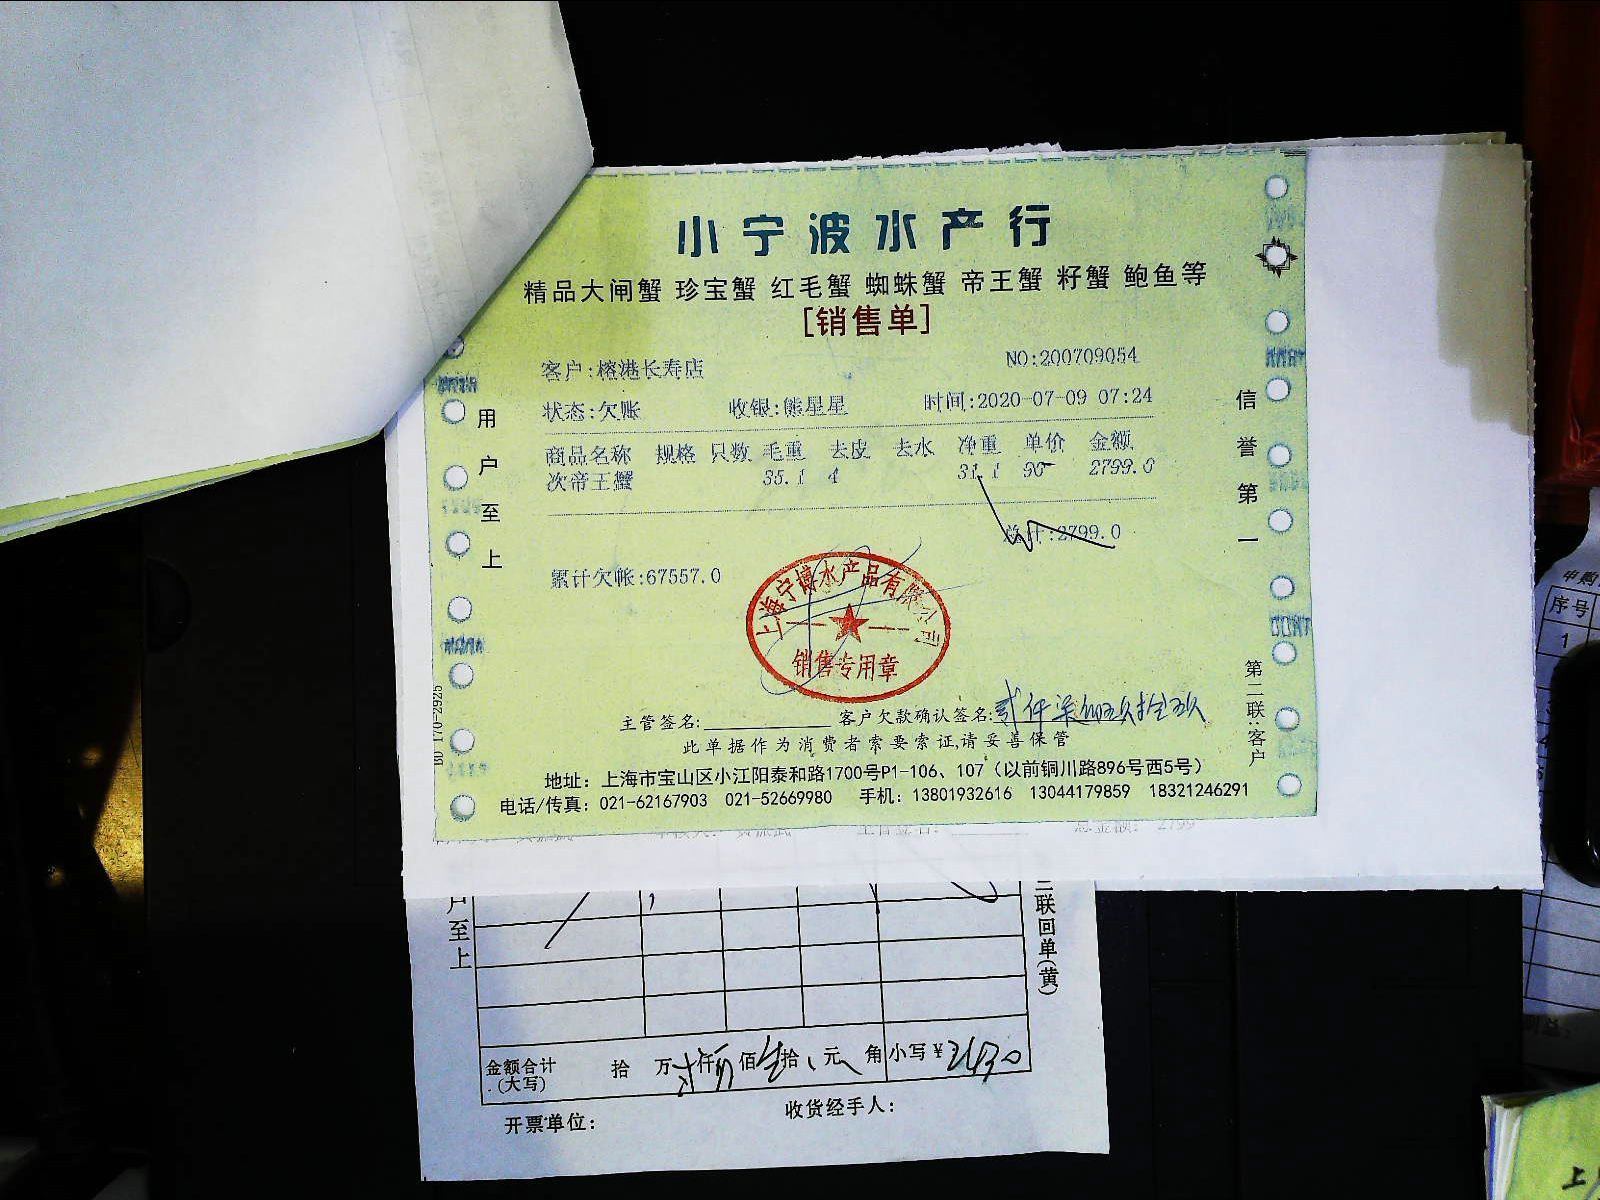 小宁波水产行
精品大闸蟹 珍宝蟹 红毛蟹 蜘蛛蟹 帝王蟹 籽蟹 鲍鱼等
[销售单]
客户:榕港长寿店 NO:200709054
状态:欠账 收银:熊星星 时间:2020-07-09 07:24
商品名称 规格 只数 毛重 去皮 去水 净重 单价 金额
次帝王蟹 35.1 4 31.1 90 2799.0
总计:2799.0
累计欠帐:67557.0
上海宁博水产品有限公司
销售专用章
主管签名: 客户欠款确认签名:贰仟柒佰玖拾玖
此单据作为消费者索要索证,请妥善保管
地址：上海市宝山区小江阳泰和路1700号P1-106、107（以前铜川路896号西5号）
电话/传真：021-62167903 021-52669980 手机：13801932616 13044179859 18321246291
用户至上
信誉第一
第二联:客户
户至上
二联回单(黄)
金额合计(大写) 拾 万 仟 佰 拾 元 角 小写¥
开票单位： 收货经手人：
申购
序号
1